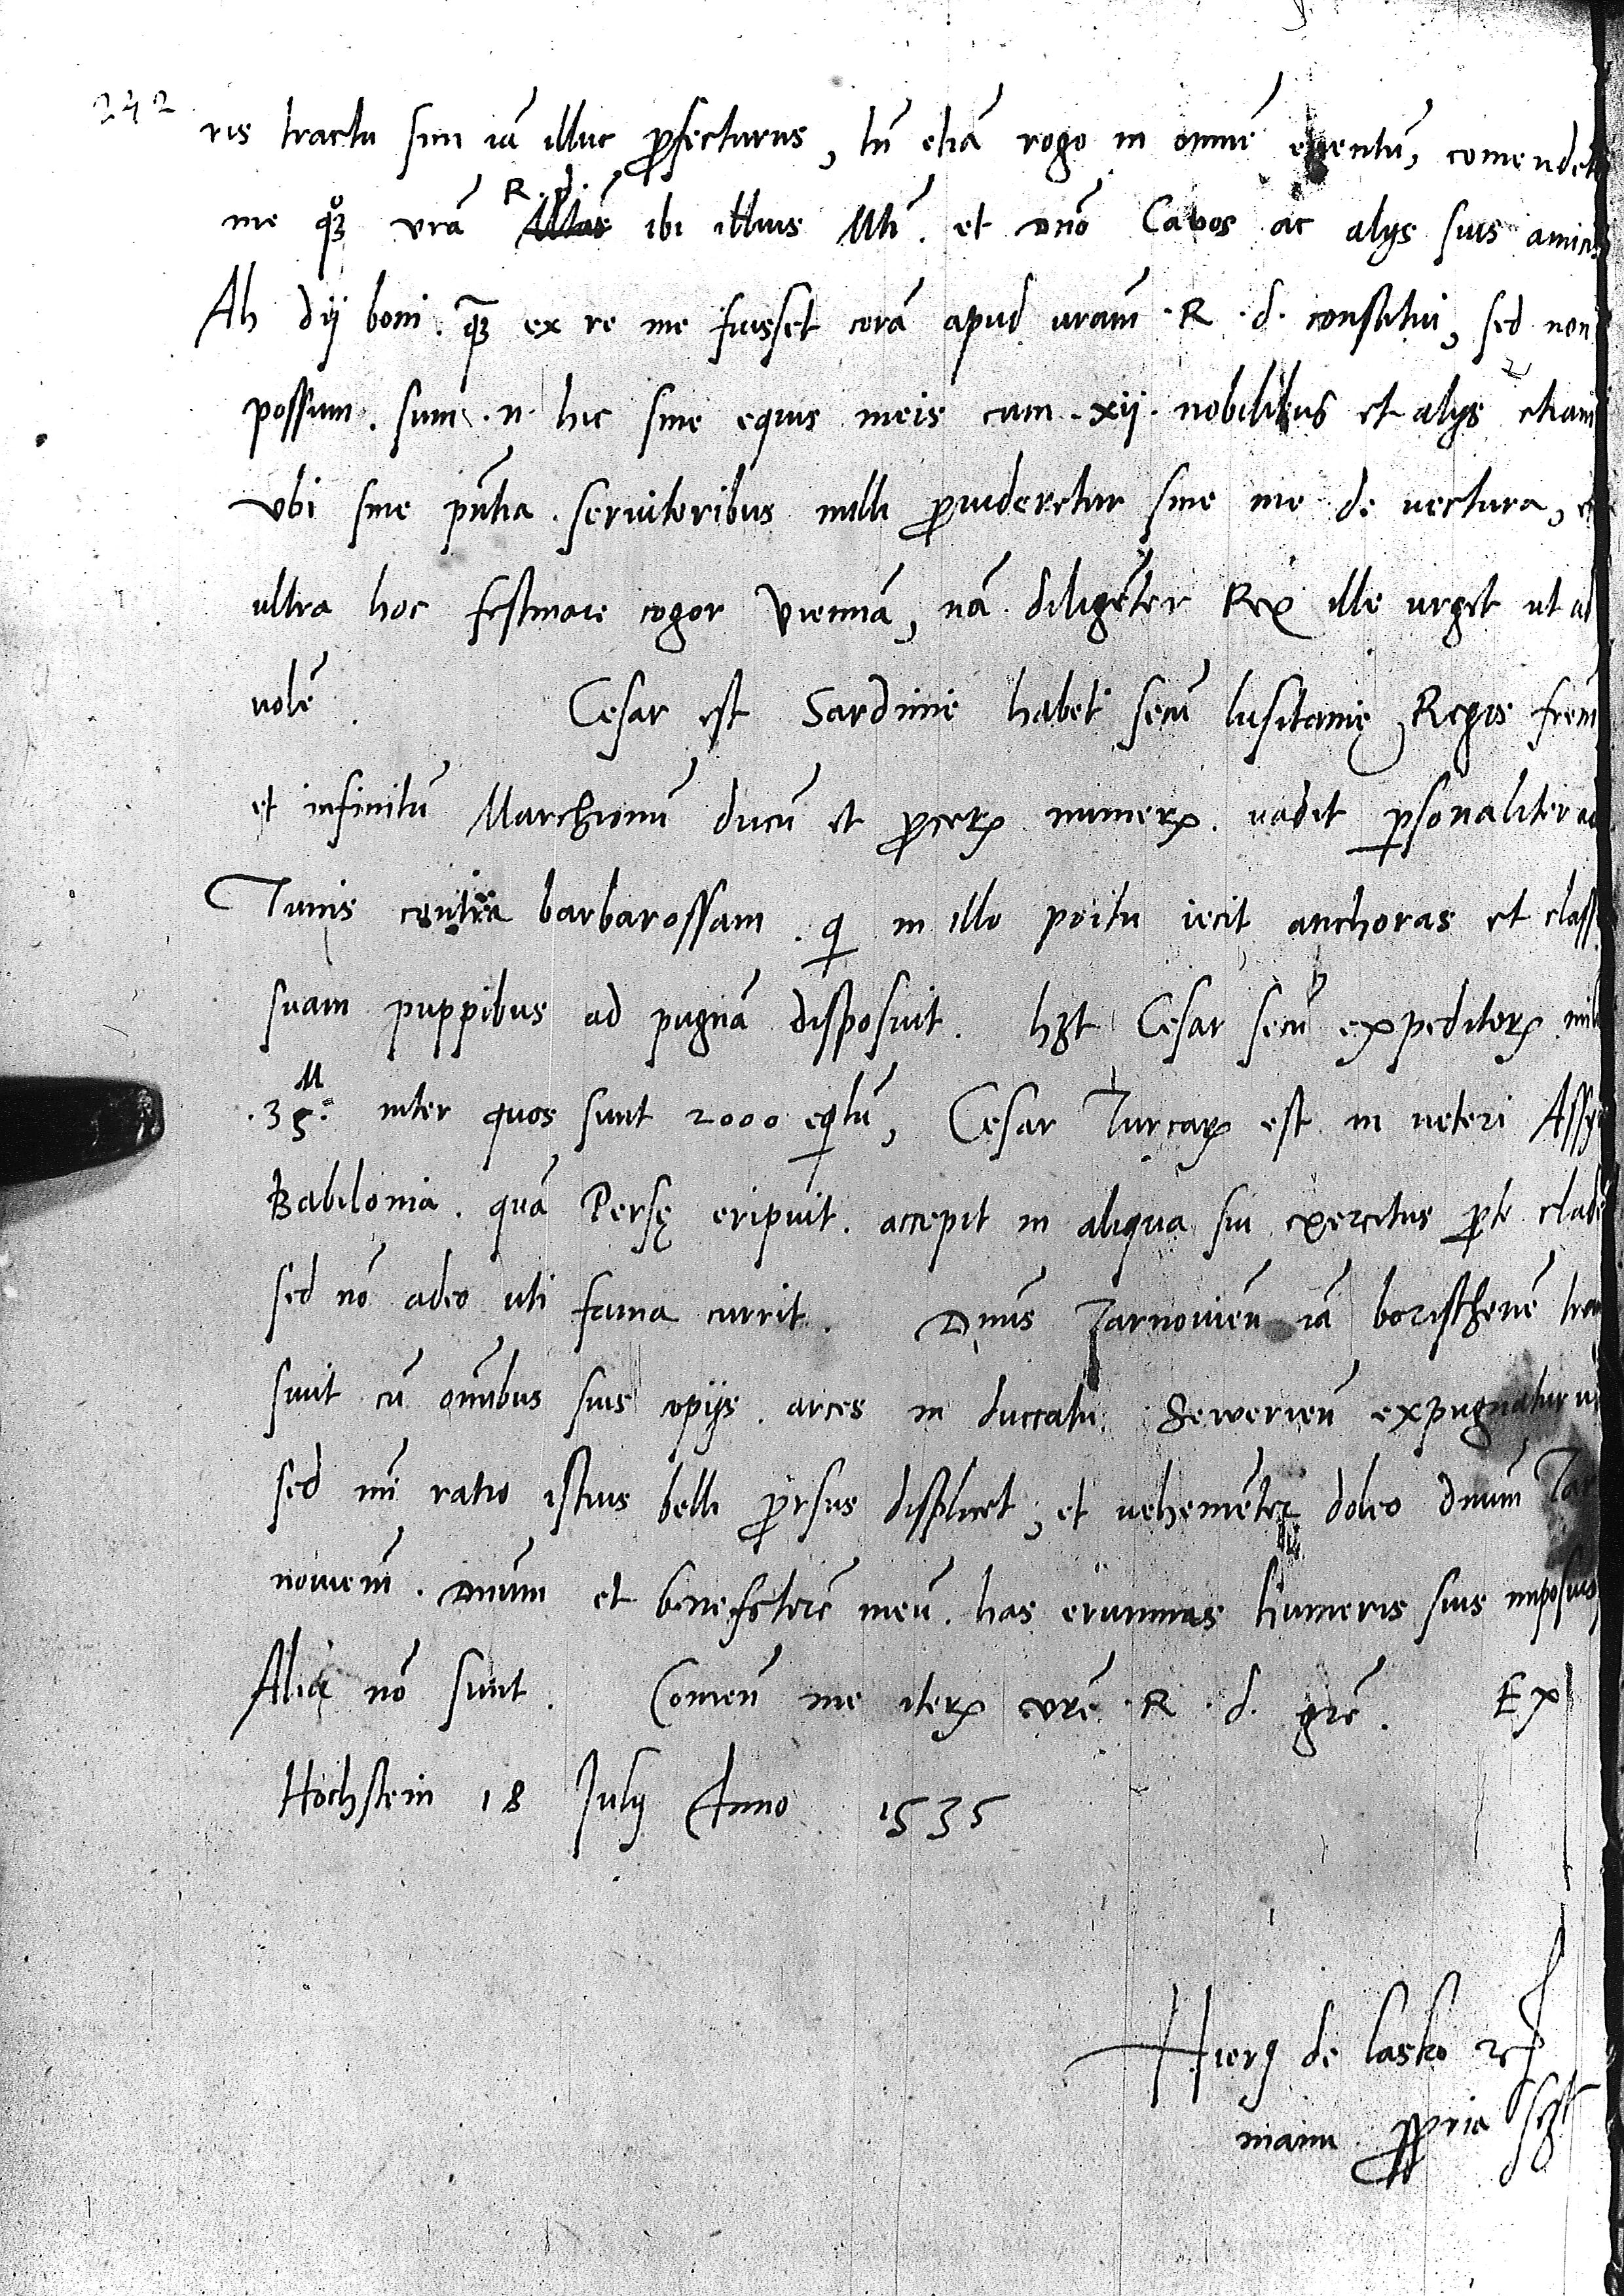 242
ris tractu sim iā illuc ꝓfecturus, tn̄ etiā rogo in omnē euentū, comendet
me qͦꝫ vrā R. d. ibi illius Mti. et dno Cavos ac alys suis amicis
Ah dij boni. q̄ꝫ ex re me fuisset corā apud uram .R.d. constitui, sed non
possum. sum .n. hic sine equis meis cum .xij. nobilibus et alys etiam
vbi sine pn̄tia seruitoribus nulli ꝓuideretur sine me de uectura, et
ultra hoc festinare cogor Viennā, nā diligēter Rex ille urget ut ad
uolē. Cesar est Sardinie habet secū lusitanię Regis frem
et infinitū Marchionū ducū et ꝓcerꝝ numerꝝ. uadit ꝑsonaliter ad
Tunis contra barbarossam. q in illo portu iecit anchoras et class
suam puppibus ad pugnā disposuit. hꝫt Cesar secū expeditorꝝ mil
.35.M inter quos sunt 2000 eqtū, Cesar Turcaꝝ est in ueteri Assy
Babilonia. quā Persę eripuit. accepit in aliqua sui exercitus ꝑte cladē
sed nō adeo uti fama currit. Dnūs Tarnouien̄ iā boristhenē tran
siuit cū omībus suis copijs. arces in duccatu Sewerien̄ expugnatur
sed mī ratio istius belli ꝓrsus displicet, et uehemēter doleo dnum Tar
nouien̄. Dnum et benefctorē meū. has erumnas humeris suis imposuis
Alia nō sunt. Comen̄ me iterꝝ vrē .R.d. grē. Ex
Hochstein 18 July Anno 1535
Hierꝯ de lasko
manu ꝓpria sszt